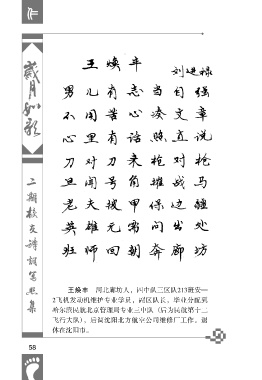 作
岁月如歌
二期校友诗词写照集
王焕丰
刘延禄
男儿有志当自强
不用苦心凑文章
心里有话照直说
刀对刀来枪对枪
旦闻号角摧战马
老夫披甲保边疆
英雄元需问出处
班师回朝奔廊坊
王焕丰　河北廊坊人，四中队三区队213班安—
2飞机发动机维护专业学员，副区队长，毕业分配到
哈尔滨民航北京管理局专业三中队（后为民航第十二
飞行大队），后调沈阳北方航空公司维修厂工作，退
休在沈阳市。
58